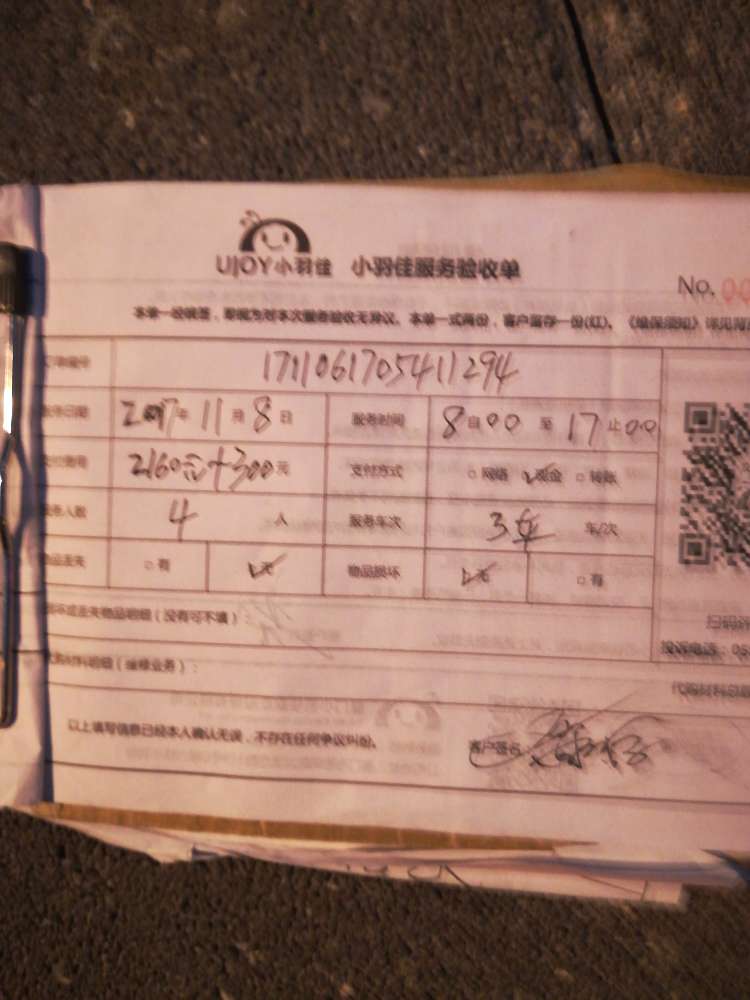 UJOY小羽佳 小羽佳服务验收单
No. 00
本单一经签署，即视为对本次服务验收无异议。本单一式两份，客户留存一份(红)。《维保须知》详见背
订单编号 1711061705411294
服务日期 2017年 11月 8日 服务时间 8自00 至 17止00
支付费用 2160元+300元 支付方式 □网络 ☑现金 □转账
服务人数 4人 服务车次 3车 车/次
物品丢失 □有 ☑无 物品损坏 ☑无 □有
损坏或丢失物品明细（没有可不填）：
扫码
投诉电话：05
材料明细（维修业务）：
代购材料总
以上填写信息已经本人确认无误，不存在任何争议纠纷。 客户签名